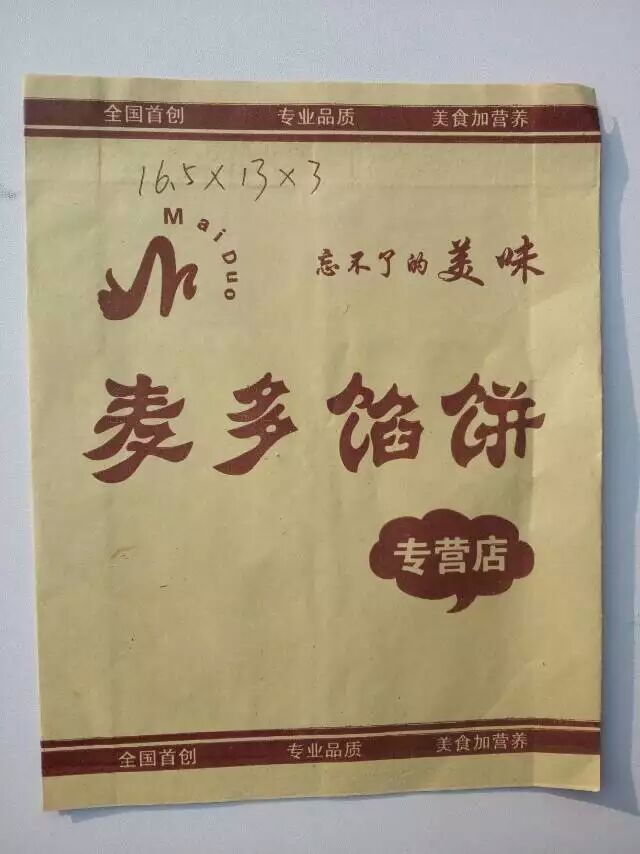 全国首创 专业品质 美食加营养
16.5×13×3
MaiDuo
忘不了的美味
麦多馅饼
专营店
全国首创 专业品质 美食加营养